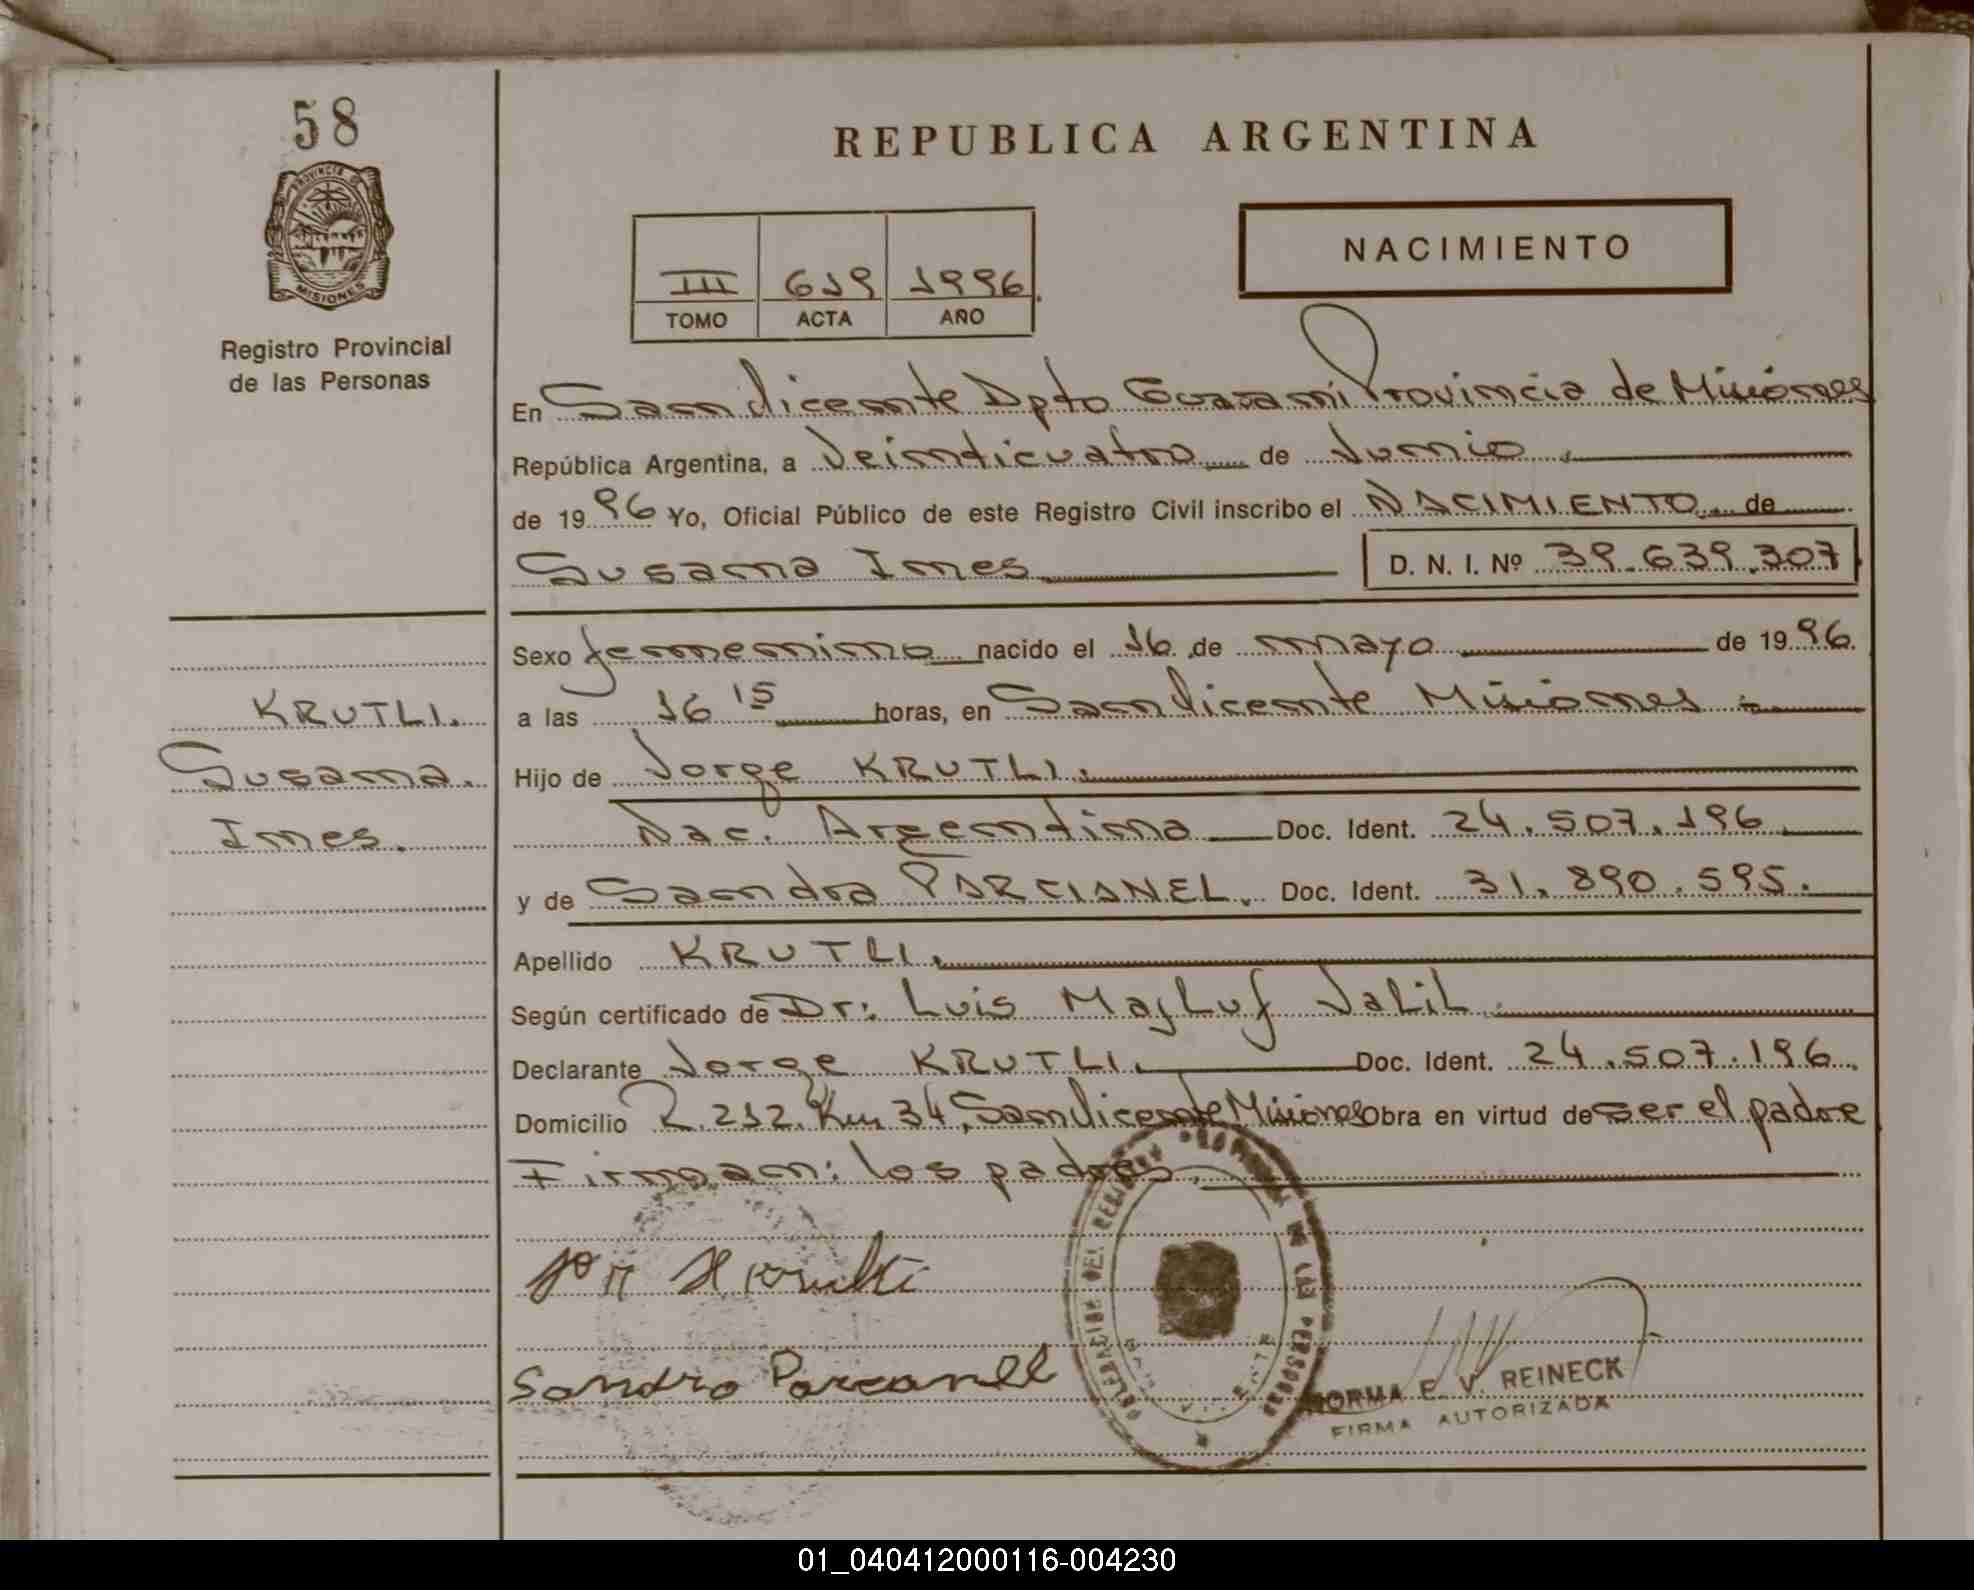 58
PROVINCIA DE
MISIONES
Registro Provincial
de las Personas
REPUBLICA ARGENTINA
NACIMIENTO
III 619 1996
TOMO ACTA AÑO
En San Vicente Dpto Guaraní Provincia de Misiones
República Argentina, a Veinticuatro de Junio
de 1996 Yo, Oficial Público de este Registro Civil inscribo el NACIMIENTO de
Susana Ines D. N. I. Nº 39.639.307
Sexo femenino nacido el 16 de mayo de 1996.
a las 16 15 horas, en San Vicente Misiones
Hijo de Jorge KRUTLI.
Nac. Argentina Doc. Ident. 24.507.196
y de Sandra PARCIANEL. Doc. Ident. 31.890.595.
Apellido KRUTLI.
Según certificado de Dr: Luis Majluf Jalil
Declarante Jorge KRUTLI. Doc. Ident. 24.507.196
Domicilio R. 212. Km 34, San Vicente Misiones Obra en virtud de ser el padre
Firman: los padres.
KRUTLI.
Susana.
Ines.
Sandra Parcanell
DE LAS PERSONAS
NORMA E. V. REINECK
FIRMA AUTORIZADA
01_040412000116-004230